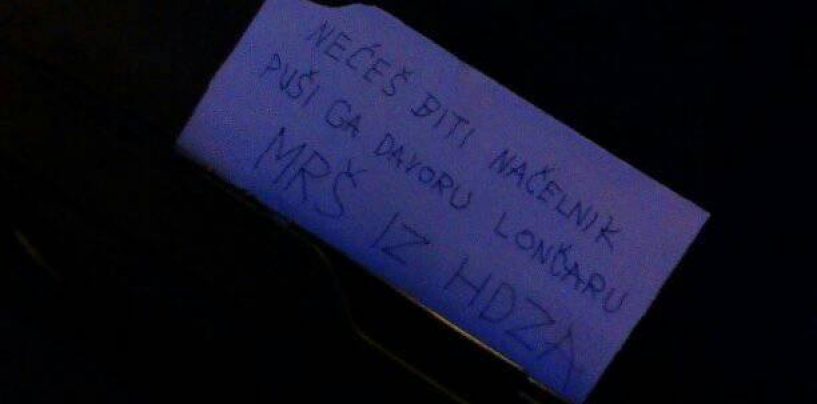 NEĆEŠ BITI NAČELNIK
PUŠI GA DAVORU LONČARU
MRŠ IZ HDZA